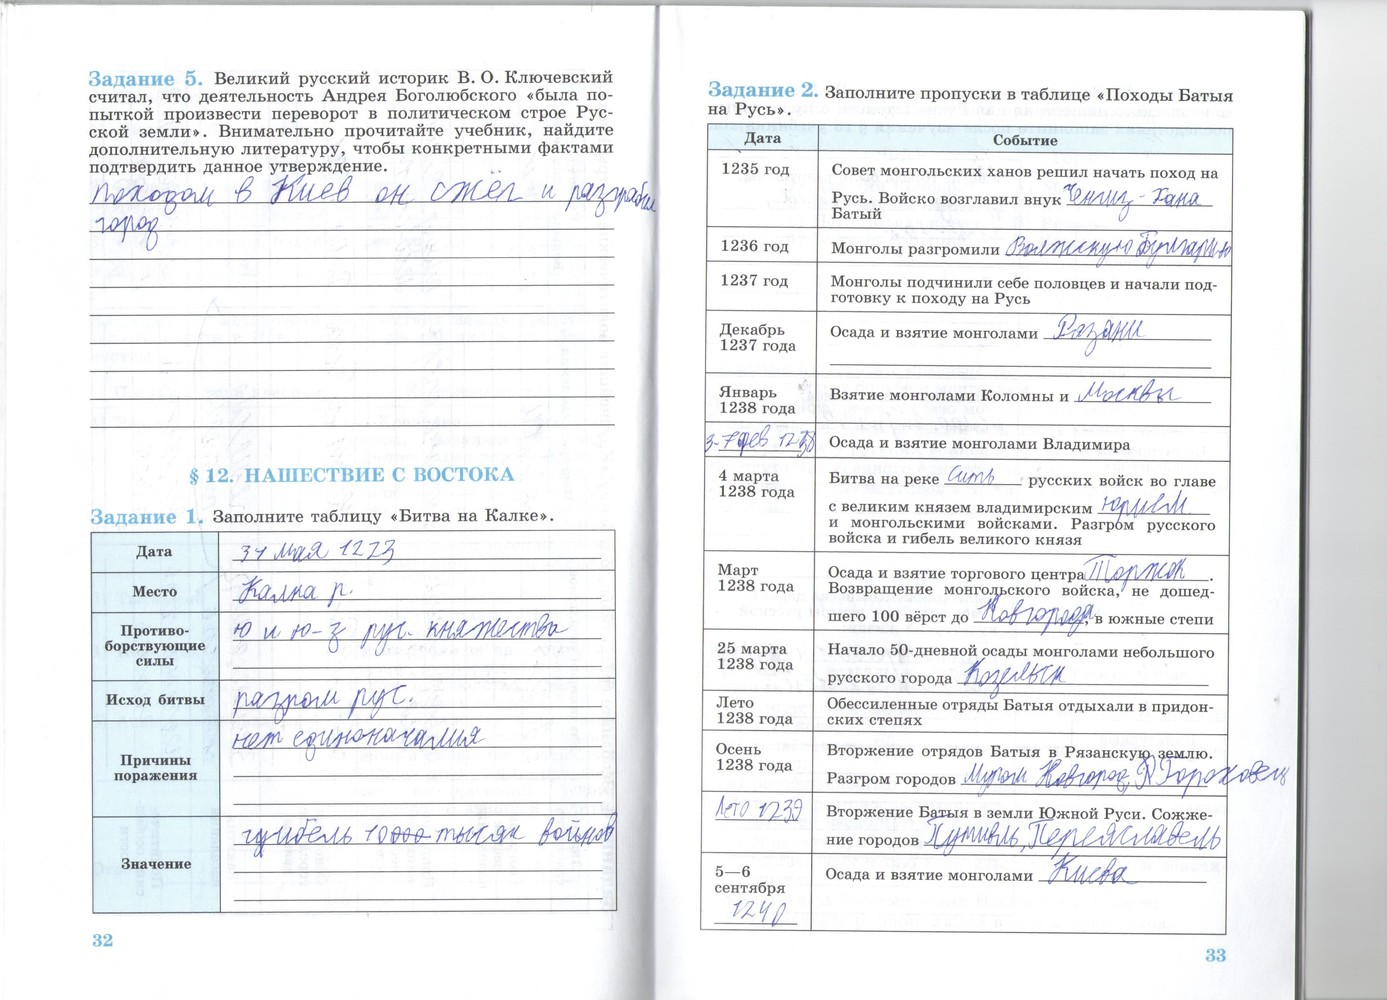 Задание 5. Великий русский историк В. О. Ключевский
считал, что деятельность Андрея Боголюбского «была по-
пыткой произвести переворот в политическом строе Рус-
ской земли». Внимательно прочитайте учебник, найдите
дополнительную литературу, чтобы конкретными фактами
подтвердить данное утверждение.
походом в Киев он сжёг и разграбил
город
§ 12. НАШЕСТВИЕ С ВОСТОКА
Задание 1. Заполните таблицу «Битва на Калке».
Дата 31 мая 1223
Место Калка р.
Противо-
борствующие
силы
Ю и Ю-З рус. княжества
Исход битвы разгром рус.
Причины
поражения
нет единоначалия
Значение
гибель 10000 тысяч войнов
32
Задание 2. Заполните пропуски в таблице «Походы Батыя
на Русь».
Дата Событие
1235 год Совет монгольских ханов решил начать поход на
Русь. Войско возглавил внук Ченгиз-Хана
Батый
1236 год Монголы разгромили Волжскую Булгарию
1237 год Монголы подчинили себе половцев и начали под-
готовку к походу на Русь
Декабрь
1237 года
Осада и взятие монголами Рязани
Январь
1238 года
Взятие монголами Коломны и Москвы
3-7 фев 1238 Осада и взятие монголами Владимира
4 марта
1238 года
Битва на реке Сить русских войск во главе
с великим князем владимирским Юрием
и монгольскими войсками. Разгром русского
войска и гибель великого князя
Март
1238 года
Осада и взятие торгового центра Торжок.
Возвращение монгольского войска, не дошед-
шего 100 вёрст до Новгорода, в южные степи
25 марта
1238 года
Начало 50-дневной осады монголами небольшого
русского города Козельск
Лето
1238 года
Обессиленные отряды Батыя отдыхали в придон-
ских степях
Осень
1238 года
Вторжение отрядов Батыя в Рязанскую землю.
Разгром городов Муром Новгород, Гороховец
Лето 1239 Вторжение Батыя в земли Южной Руси. Сожже-
ние городов Путивль, Переяславель
5—6
сентября
1240
Осада и взятие монголами Киева
33